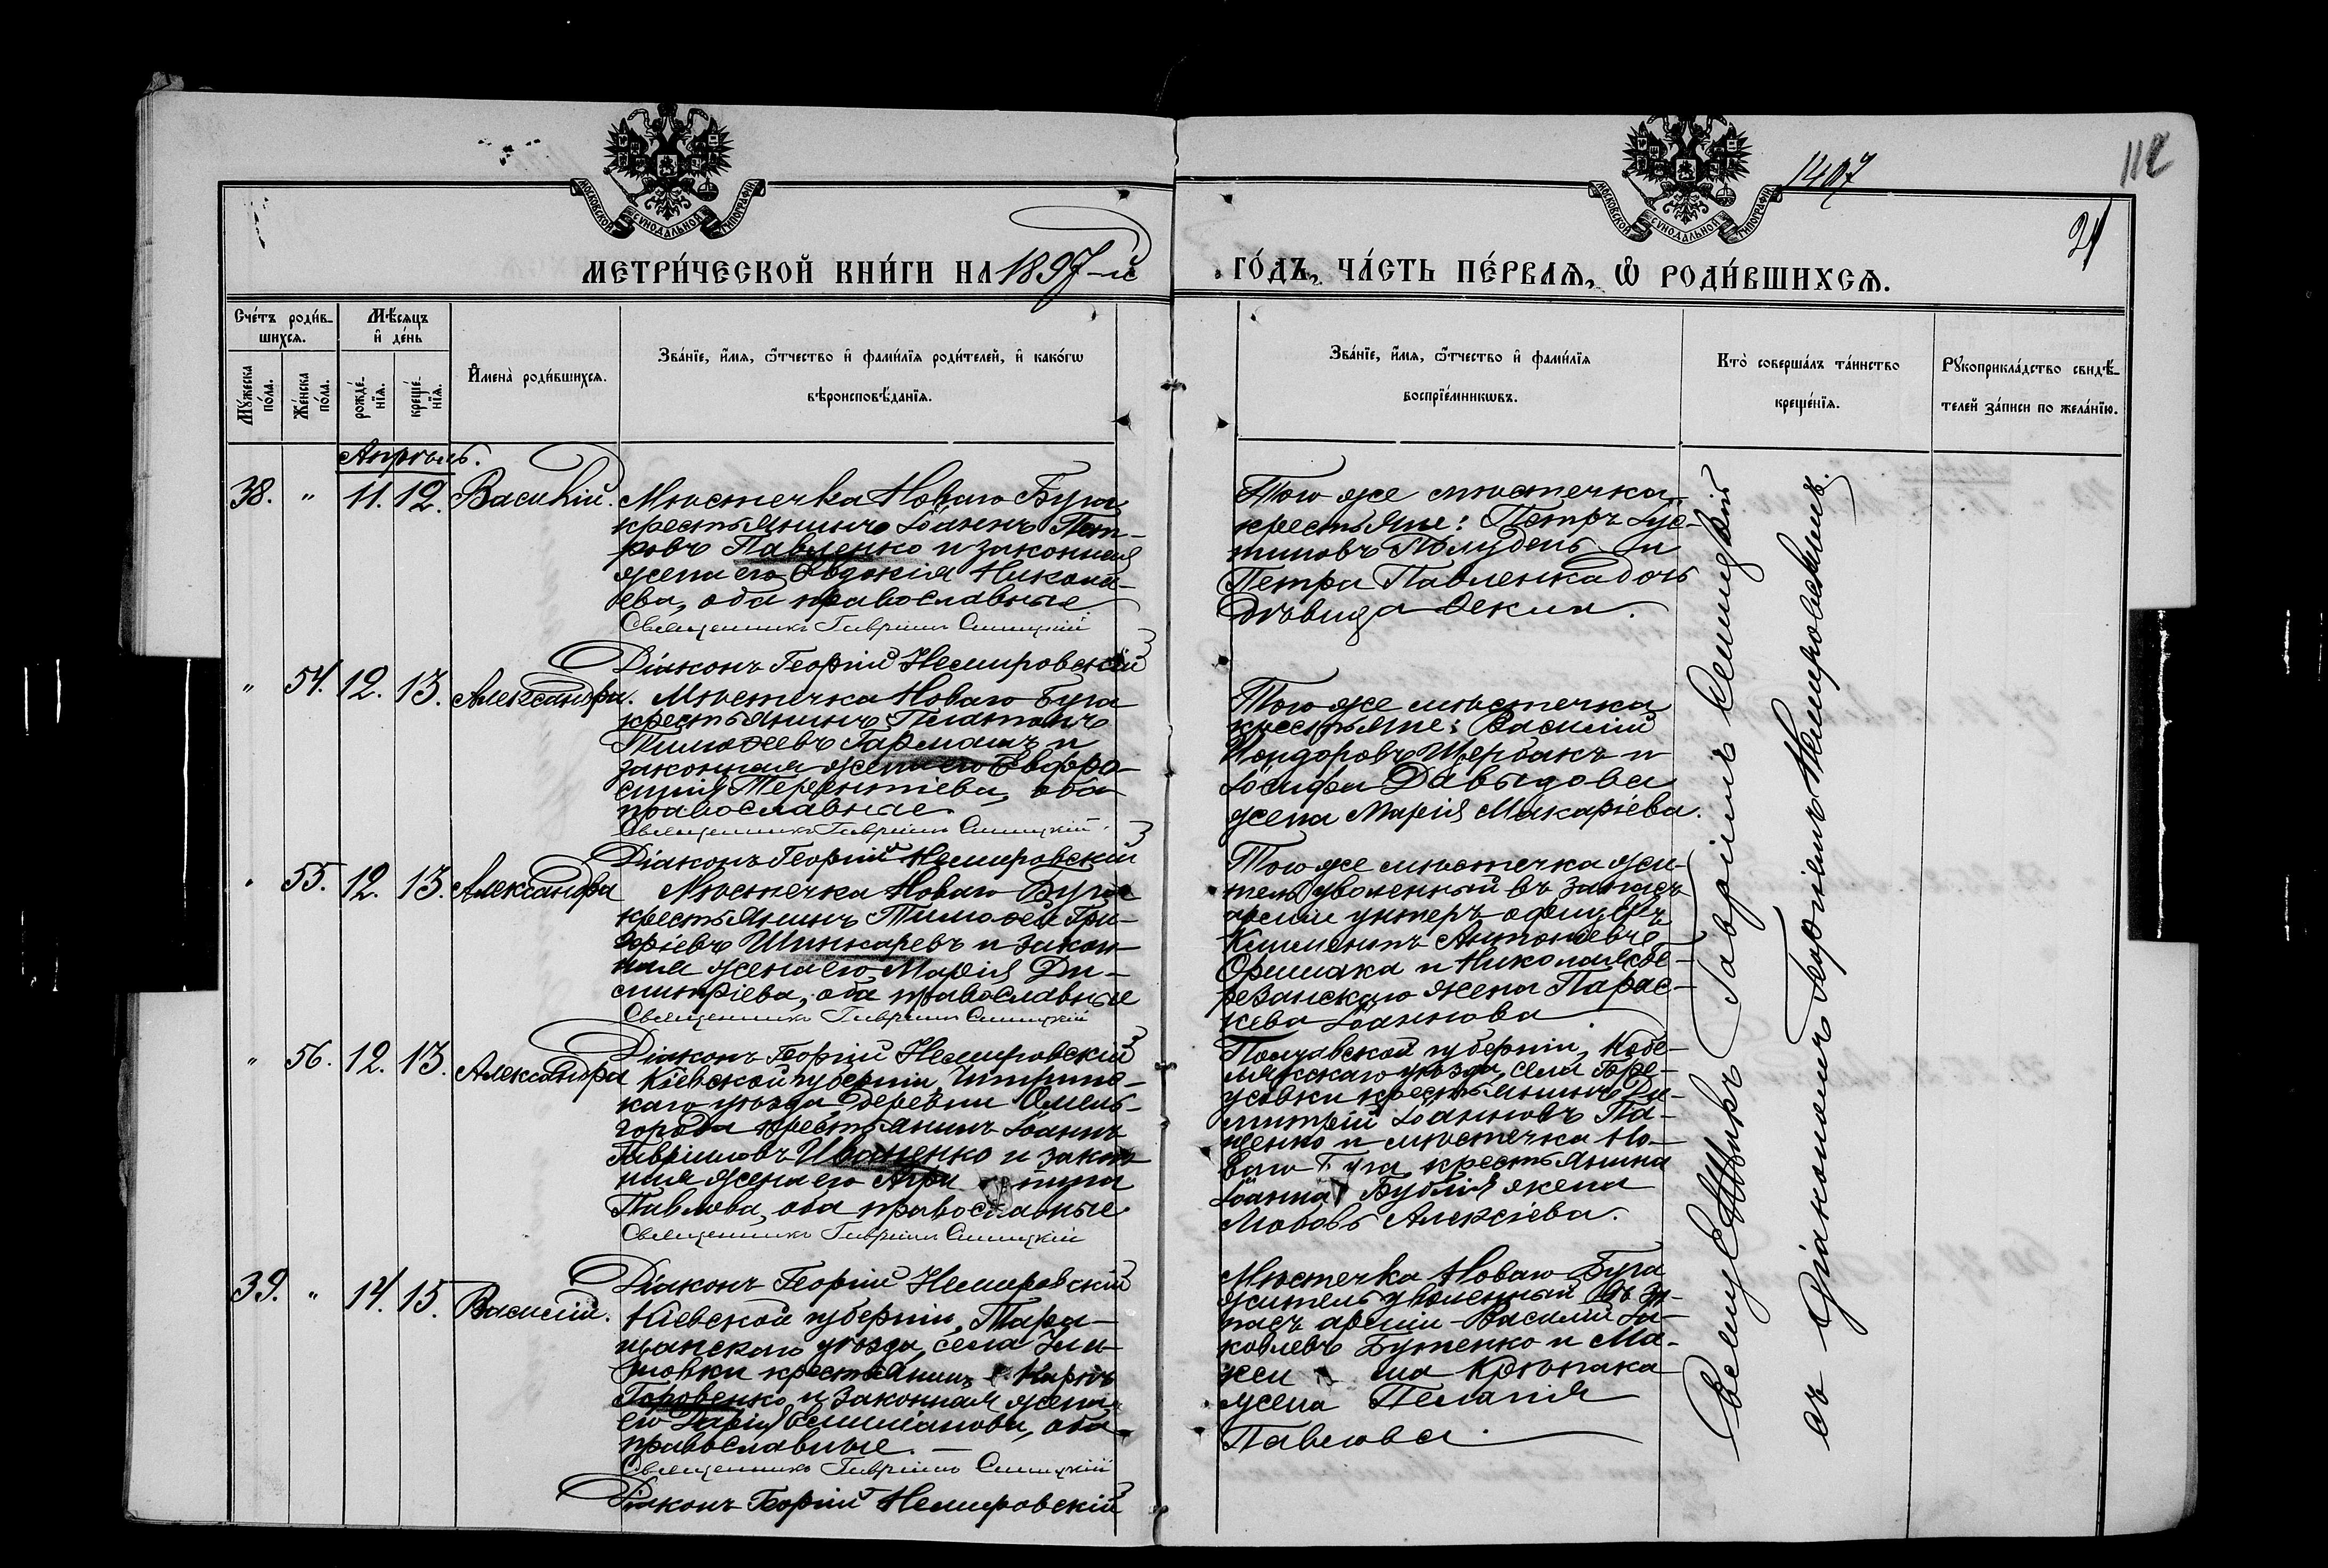 1407
112
21
МОСКОВСКОЙ СѴНОДАЛЬНОЙ ТИПОГРАФІИ
МОСКОВСКОЙ СѴНОДАЛЬНОЙ ТИПОГРАФІИ
МЕТРИ́ЧЕСКОЙ КНИ́ГИ НА 1897-й
ГО́ДЪ, ЧА́СТЬ ПЕ́РВАѦ, Ѡ҆ РОДИ́ВШИХСѦ.
Сче́тъ роди́в-
шихсѧ.
Мѣ́сѧцъ
и҆ де́нь
Мꙋ́жеска по́ла.
Же́нска по́ла.
рожде́-
нїѧ.
креще́-
нїѧ.
И҆мена̀ роди́вшихсѧ.
Зва́нїе, и҆́мѧ, ѻ҆́тчество и҆ фами́лїѧ роди́телей, и҆ како́гѡ
вѣроисповѣ́данїѧ.
Зва́нїе, и҆́мѧ, ѻ҆́тчество и҆ фами́лїѧ
воспрїе́мникѡвъ.
Кто̀ соверша́лъ та́инство
креще́нїѧ.
Рꙋкоприкла́дство свидѣ́-
телей за́писи по жела́нїю.
Апрѣль.
38. " 11. 12. Василій.
Мѣстечка Новаго Буга
крестьянинъ Іоаннъ Пет-
ровъ Павленко и законная
жена его Евдокія Никола-
ева, оба православные
Священникъ Гавріилъ Синицкій
Діаконъ Георгій Немировскій
Того же мѣстечка
крестьяне: Петръ Іус-
тиновъ Полудень и
Петра Павленка дочь
дѣвица Ѳекла.
" 54. 12. 13. Александра.
Мѣстечка Новаго Буга
крестьянинъ Платонъ
Тимоѳеевъ Гармашъ и
законная жена его Евфро-
синія Терентіева, оба
православные.
Священникъ Гавріилъ Синицкій.
Діаконъ Георгій Немировскій
Того же мѣстечка
крестьяне: Василій
Щербакъ и
Іосифа Давыдова
жена Марія Макаріева.
" 55. 12. 13. Александра
Мѣстечка Новаго Буга
крестьянинъ Тимоѳей Гри-
горіевъ Шинкаревъ и закон-
ная жена его Марія Ди-
митріева, оба православные
Священникъ Гавріилъ Синицкій
Діаконъ Георгій Немировскій
Того же мѣстечка жи-
тель уволенный въ запасъ
арміи унтеръ-офицеръ
Климентъ Антоніевъ
и Николая
жена Парас-
кева Іоаннова
" 56. 12. 13. Александра
Кіевской губерніи, Чигирин-
каго уѣзда, деревни Омель-
города крестьянинъ Іоаннъ
Гавріиловъ Иваненко и закон-
ная жена его Агри пина
Павлова, оба православные.
Священникъ Гавріилъ Синицкій
Діаконъ Георгій Немировскій
Полтавской губерніи, Кобе-
лякскаго уѣзда, села Бре-
усовки крестьянинъ Ди-
митрій Іоанновъ Па-
щенко и мѣстечка Но-
ваго Буга крестьянина
Іоанна Бублія жена
Любовь Алексіева.
39. " 14. 15. Василій.
Кіевской губерніи, Тара-
щанскаго уѣзда, села
крестьянинъ Карпъ
Горовенко и законная жена
его Дарія Емиліанова, оба
православные. -
Священникъ Гавріилъ Синицкій
Діаконъ Георгій Немировскій
Мѣстечка Новаго Буга
житель уволенный въ за-
пасъ арміи Василій Іа-
ковлевъ Бутенко и Ма-
кси ма Крюпака
жена Пелагія
Павлова.
Священникъ Гавріилъ Синицкій
съ діакономъ Георгіемъ Немировскимъ.